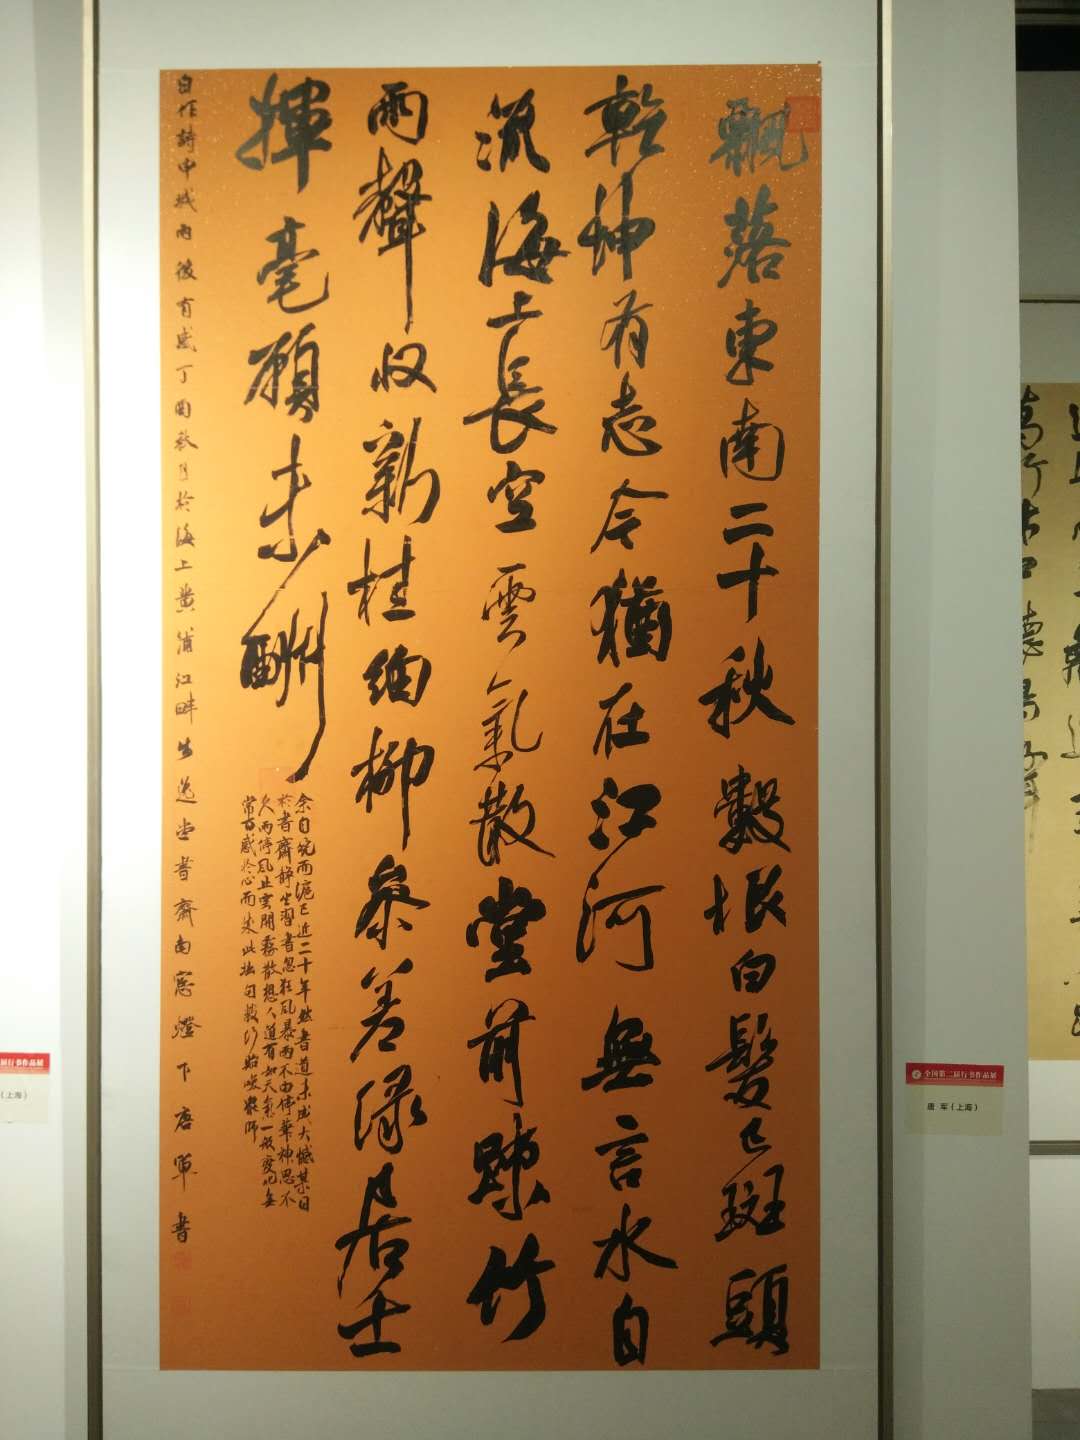 飄落東南二十秋數根白髮已斑頭
乾坤有志今猶在江河無言水自
流海上長空雲氣散堂前疎竹
雨聲收新桂緬柳參差綠居士
揮毫願未酬
余自皖而滬已近二十年然書道未成大憾某日
於書齋靜坐習書忽狂風暴雨不由停筆神思不
久雨停風止雲開霧散想人道有如天氣一般變化無
常百感於心而成此拙句
自作詩中城內後有感丁酉秋月於海上黃浦江畔
書齋南窗燈下唐軍書
全国第二届行书作品展
唐 军（上海）
届行书作品展
（上海）